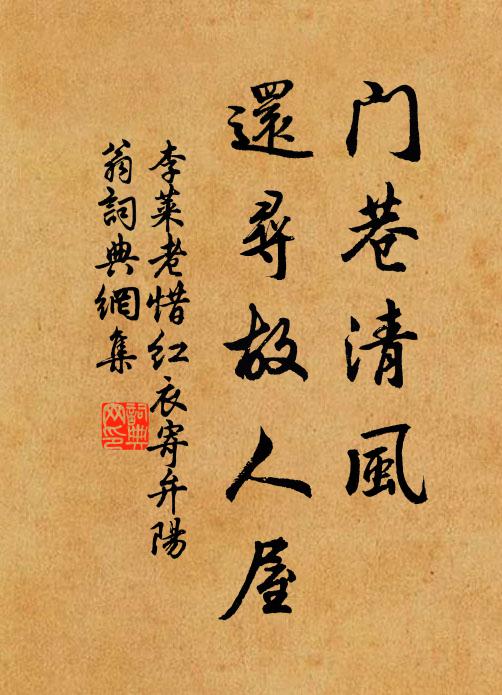 门巷清風
還尋故人屋
李萊老惜红衣寄弁陽
翁詞典網集
詞典網印